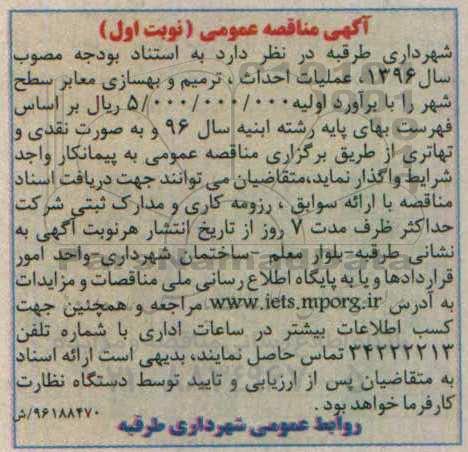 آگهی مناقصه عمومی (نوبت اول)
شهرداری طرقبه در نظر دارد به استناد بودجه مصوب
سال ۱۳۹۶، عملیات احداث ، ترمیم و بهسازی معابر سطح
شهر را با برآورد اولیه ۵/۰۰۰/۰۰۰/۰۰۰ ریال بر اساس
فهرست بهای پایه رشته ابنیه سال ۹۶ و به صورت نقدی و
تهاتری از طریق برگزاری مناقصه عمومی به پیمانکار واجد
شرایط واگذار نماید،متقاضیان می توانند جهت دریافت اسناد
مناقصه با ارائه سوابق ، رزومه کاری و مدارک ثبتی شرکت
حداکثر ظرف مدت ۷ روز از تاریخ انتشار هرنوبت آگهی به
نشانی طرقبه-بلوار معلم -ساختمان شهرداری واحد امور
قراردادها و یا به پایگاه اطلاع رسانی ملی مناقصات و مزایدات
به آدرس www.iets.mporg.ir مراجعه و همچنین جهت
کسب اطلاعات بیشتر در ساعات اداری با شماره تلفن
۳۴۲۲۲۲۱۳ تماس حاصل نمایند، بدیهی است ارائه اسناد
به متقاضیان پس از ارزیابی و تایید توسط دستگاه نظارت
کارفرما خواهد بود .
۹۶۱۸۸۴۷۰/ش
روابط عمومی شهرداری طرقبه